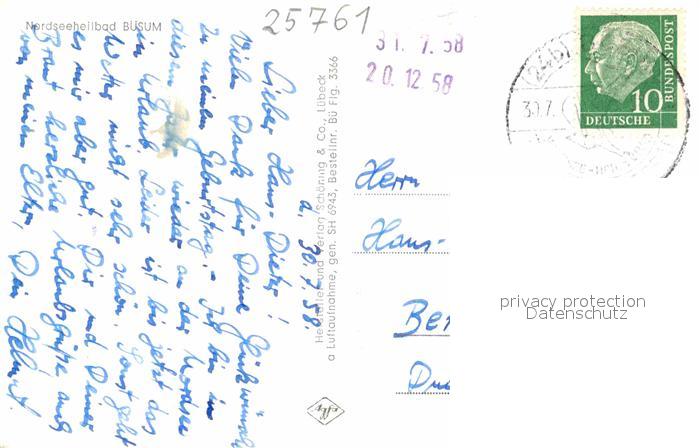 Nordseeheilbad BÜSUM
25761
31. 7. 58
20. 12 58
(24b)
30.7.
10
DEUTSCHE
BUNDESPOST
d. 30.7.58.
Lieber Hans-Dieter!
Vielen Dank für Deine Glückwünsche
zu meinem Geburtstag. - Ich bin in
diesem Jahr wieder an der Nordsee
im Urlaub. Leider ist bis jetzt das
Wetter nicht sehr schön. Sonst geht
es mir aber gut. Dir und Deiner
Braut herzliche Urlaubsgrüße auch
von meinen Eltern, Dein Helmut
Hersteller und Verlag Schöning & Co., Lübeck
a Luftaufnahme, gen. SH 6943, Bestellnr. Bü Flg. 3366
Herrn
Hans-
Be
privacy protection
Datenschutz